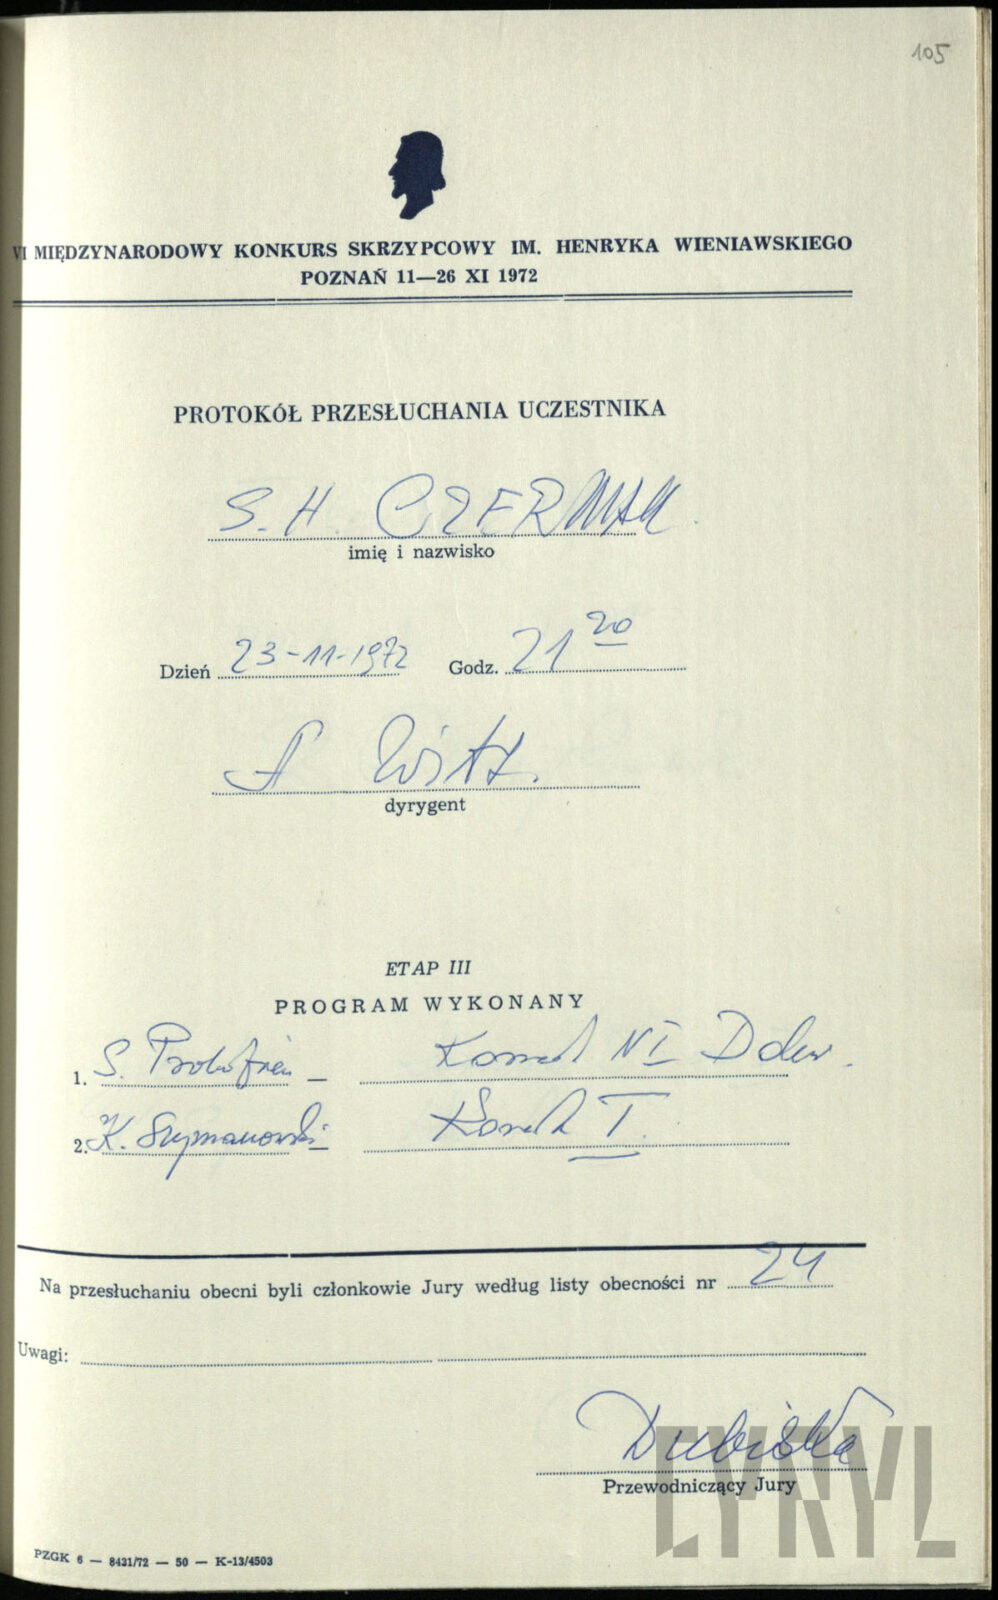 105
VI MIĘDZYNARODOWY KONKURS SKRZYPCOWY IM. HENRYKA WIENIAWSKIEGO
POZNAŃ 11—26 XI 1972
PROTOKÓŁ PRZESŁUCHANIA UCZESTNIKA
S. H. CZERMAK
imię i nazwisko
Dzień 23-11-1972 Godz. 21 20
Wit
dyrygent
ETAP III
PROGRAM WYKONANY
1. S. Prokofiew — Koncert N I D dur.
2. K. Szymanowski — Koncert I
Na przesłuchaniu obecni byli członkowie Jury według listy obecności nr 24
Uwagi:
Dubiska
Przewodniczący Jury
CYRYL
PZGK 6 — 8431/72 — 50 — K-13/4503